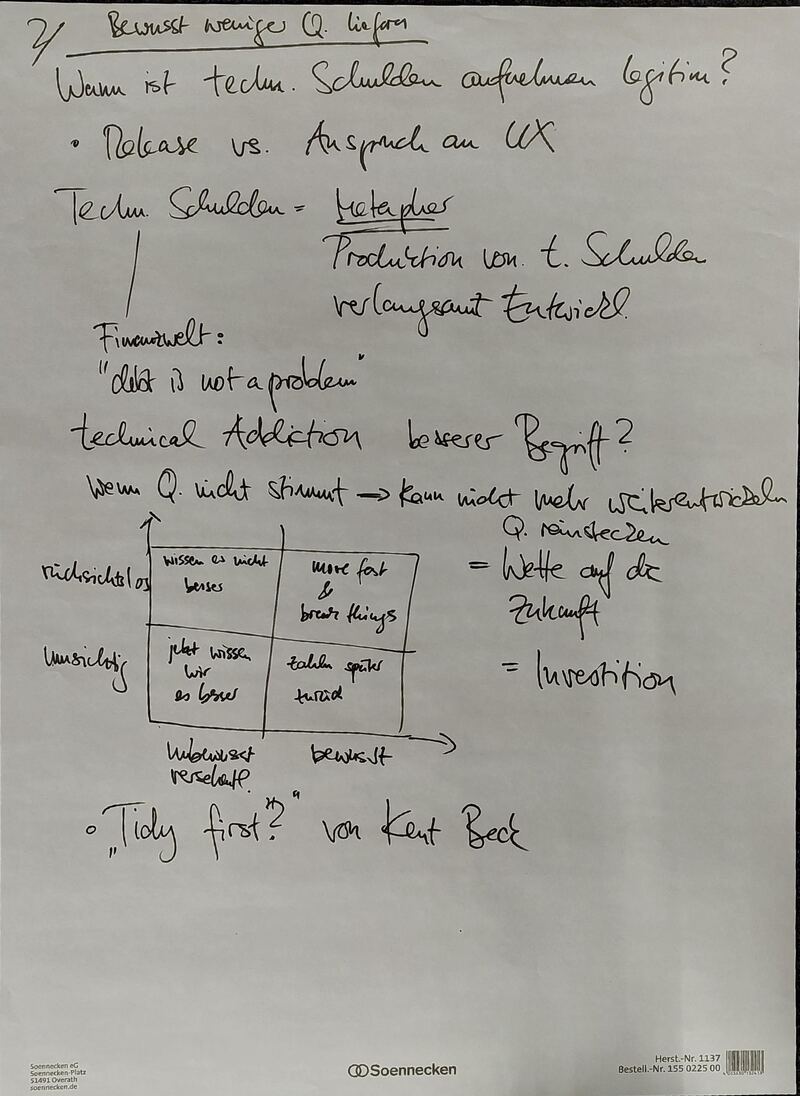 2/ Bewusst weniger Q. liefern
Wann ist techn. Schulden aufnehmen legitim?
• Release vs. Anspruch an UX
Techn. Schulden = Metapher
Produktion von t. Schulden
verlangsamt Entwickl.
Finanzwelt:
"debt is not a problem"
technical Addiction besserer Begriff?
Wenn Q. nicht stimmt → kann nicht mehr weiterentwickeln
Q. reinstecken
= Wette auf die
Zukunft
= Investition
rücksichtslos
wissen es nicht
besser
move fast
&
break things
umsichtig
jetzt wissen
wir
es besser
zahlen später
zurück
Unbewusst
bewusst
• „Tidy first?" von Kent Beck
Soennecken eG
Soennecken-Platz
51491 Overath
soennecken.de
Soennecken
Herst.-Nr. 1137
Bestell.-Nr. 155 0225 00